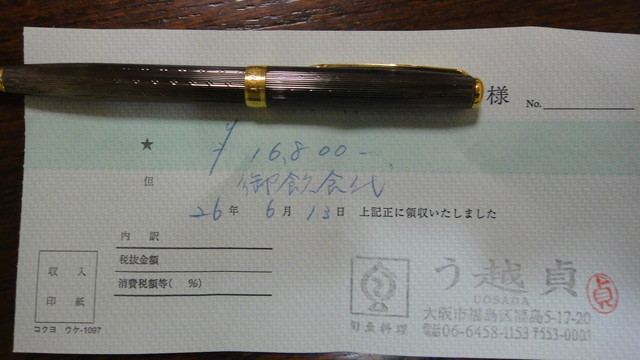 様
No.
★ ¥16,800-
但 御飲食代
26年 6月 13日 上記正に領収いたしました
内 訳
税抜金額
消費税額等( %)
収 入
印 紙
コクヨ ウケ-1097
旬魚料理
う越貞
UOSADA
大阪市福島区福島5-17-20
電話06-6458-1153 〒553-0003
貞